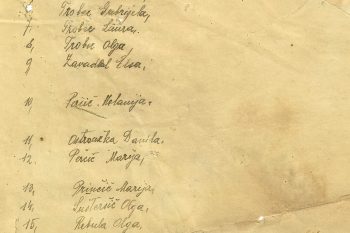 Trobec Gabrijela,
7, Trobec Laura.
8, Trobec Olga,
9 Zavadlal Elsa,
10, Perič Melanija,
11, Ostrouška Danila,
12, Perič Marija,
13, Prinčič Marija,
14, Šušteršič Olga,
15, Rebula Olga,